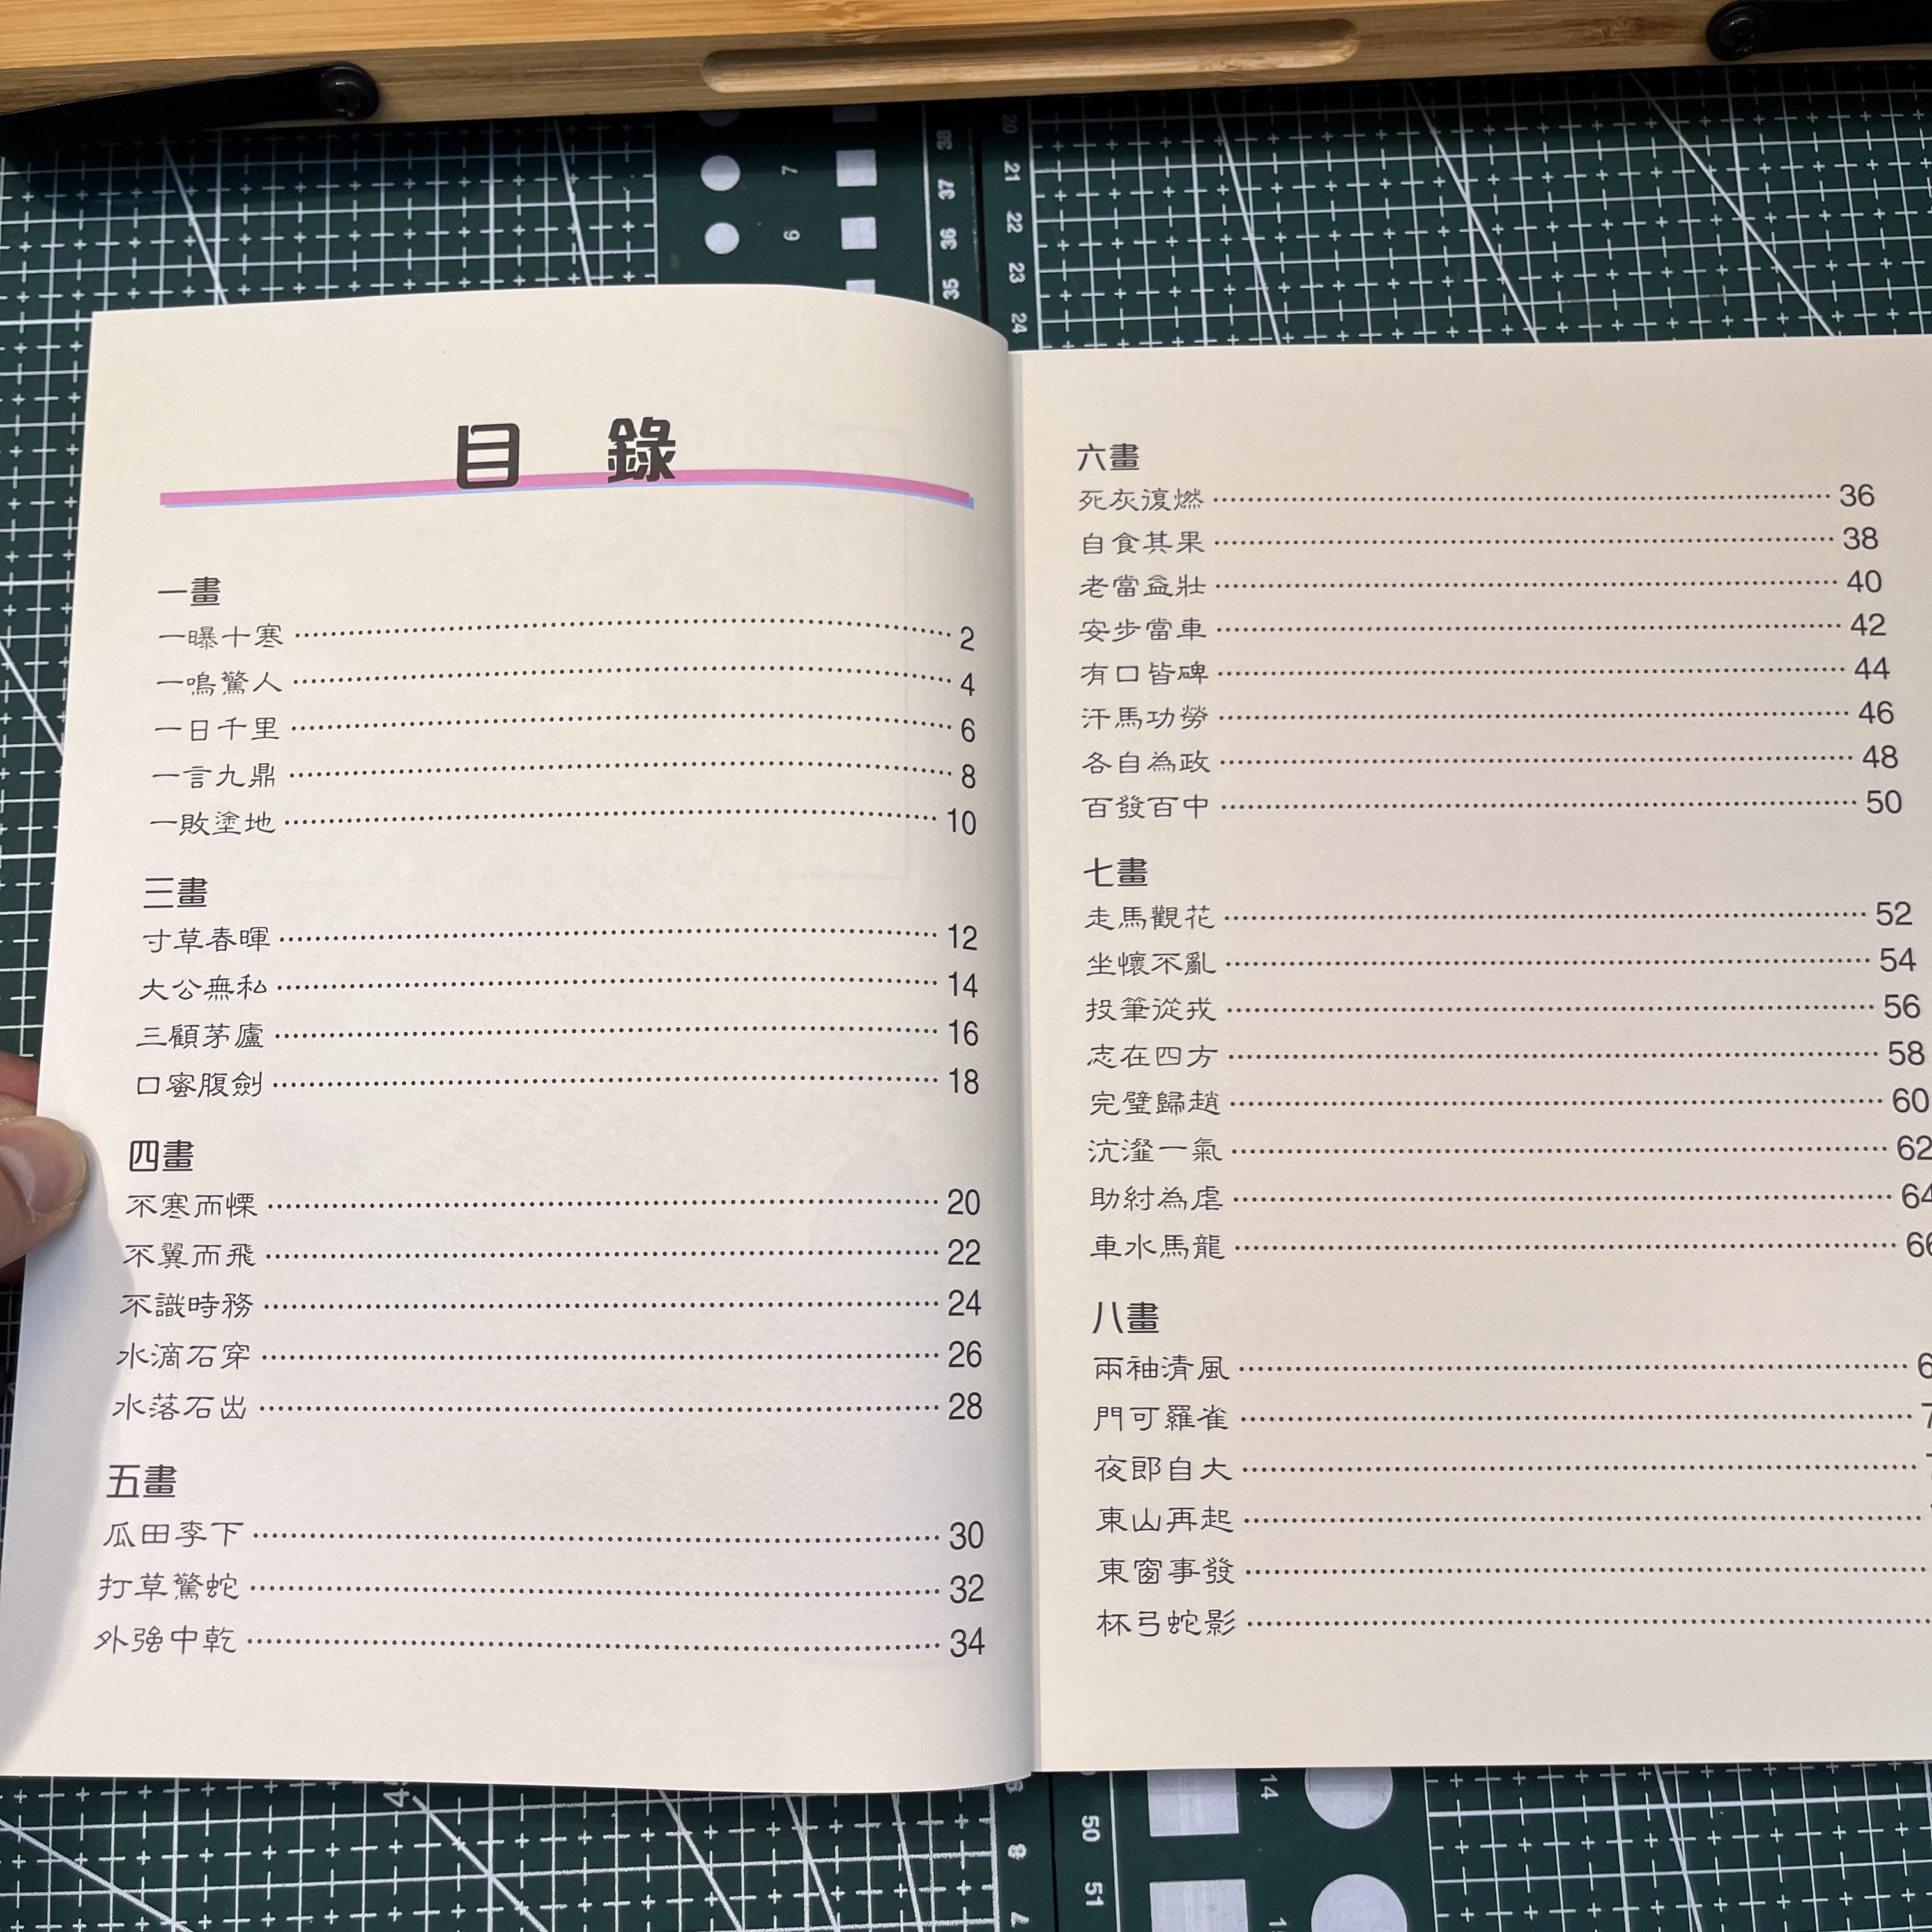 目 錄
一畫
一曝十寒 2
一鳴驚人 4
一日千里 6
一言九鼎 8
一敗塗地 10
三畫
寸草春暉 12
大公無私 14
三顧茅廬 16
口蜜腹劍 18
四畫
不寒而慄 20
不翼而飛 22
不識時務 24
水滴石穿 26
水落石出 28
五畫
瓜田李下 30
打草驚蛇 32
外強中乾 34
六畫
死灰復燃 36
自食其果 38
老當益壯 40
安步當車 42
有口皆碑 44
汗馬功勞 46
各自為政 48
百發百中 50
七畫
走馬觀花 52
坐懷不亂 54
投筆從戎 56
志在四方 58
完璧歸趙 60
沆瀣一氣 62
助紂為虐 64
車水馬龍 66
八畫
兩袖清風
門可羅雀
夜郎自大
東山再起
東窗事發
杯弓蛇影
38
37
36
35
7
6
20
21
22
23
24
50
51
14
8
7